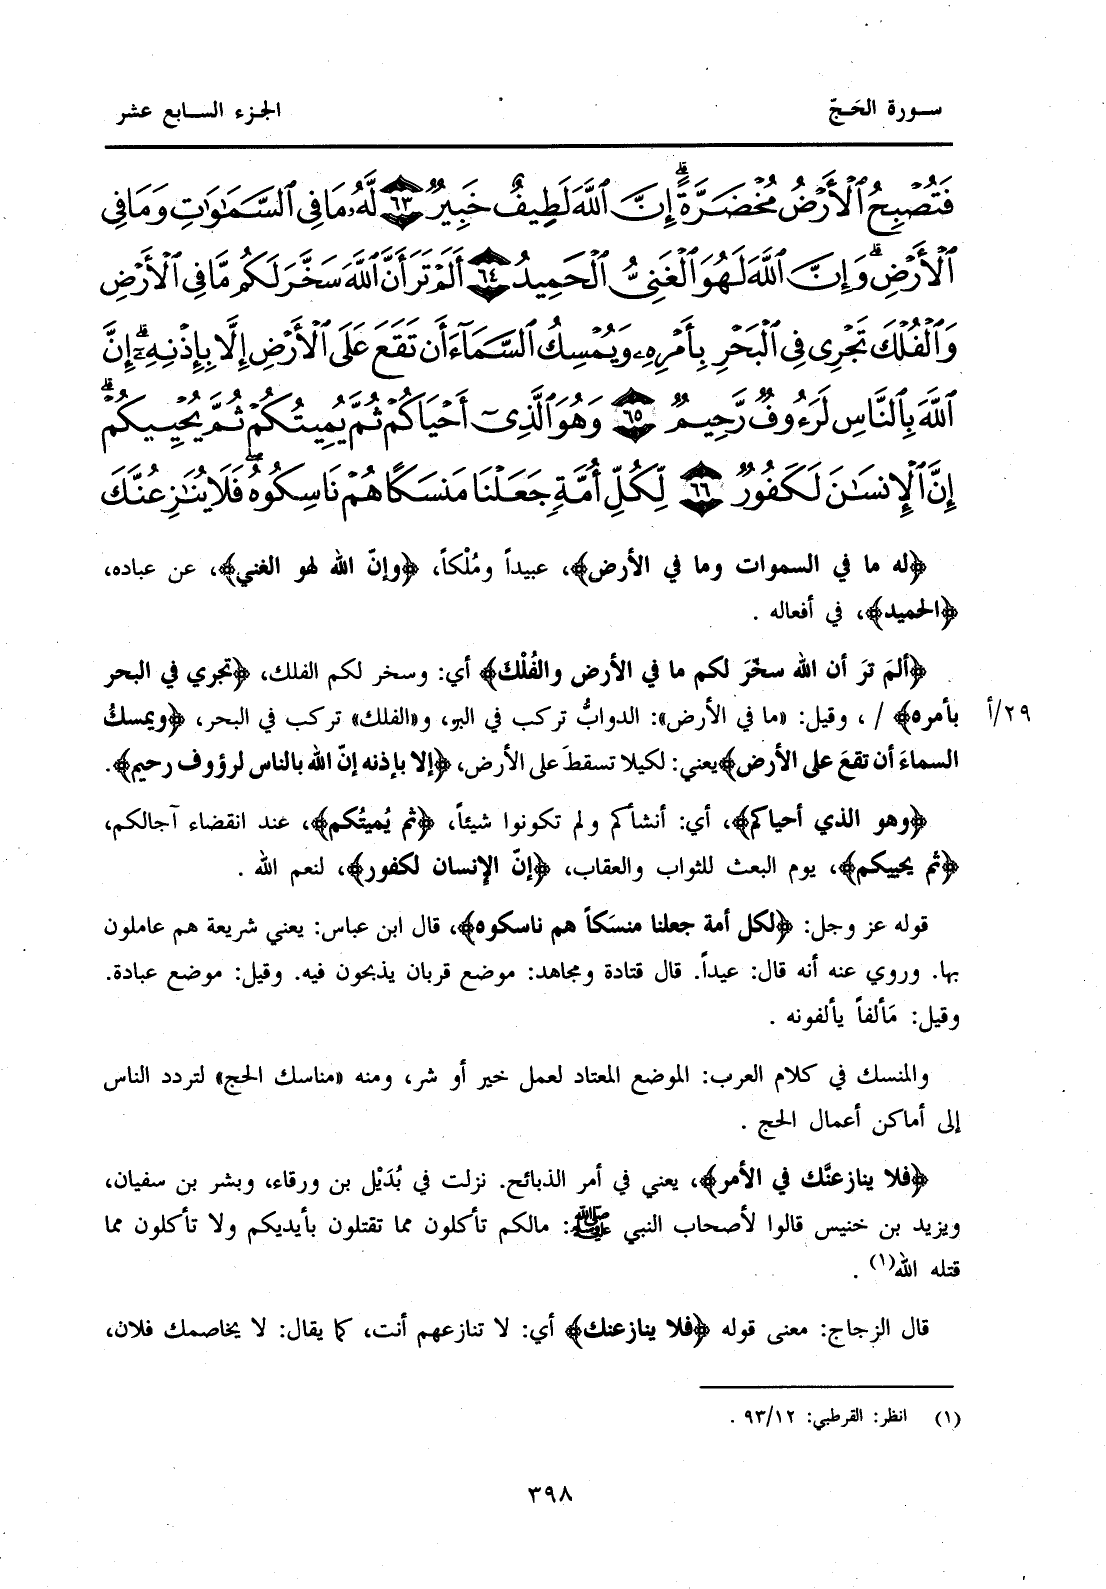 سورة الحَجّ
الجزء السابع عشر
فَتُصْبِحُ ٱلْأَرْضُ مُخْضَرَّةً ۗ إِنَّ ٱللَّهَ لَطِيفٌ خَبِيرٌ ٦٣ لَّهُۥ مَا فِي ٱلسَّمَٰوَٰتِ وَمَا فِي
ٱلْأَرْضِ ۗ وَإِنَّ ٱللَّهَ لَهُوَ ٱلْغَنِيُّ ٱلْحَمِيدُ ٦٤ أَلَمْ تَرَ أَنَّ ٱللَّهَ سَخَّرَ لَكُم مَّا فِي ٱلْأَرْضِ
وَٱلْفُلْكَ تَجْرِي فِي ٱلْبَحْرِ بِأَمْرِهِۦ وَيُمْسِكُ ٱلسَّمَآءَ أَن تَقَعَ عَلَى ٱلْأَرْضِ إِلَّا بِإِذْنِهِۦٓ ۗ إِنَّ
ٱللَّهَ بِٱلنَّاسِ لَرَءُوفٌ رَّحِيمٌ ٦٥ وَهُوَ ٱلَّذِيٓ أَحْيَاكُمْ ثُمَّ يُمِيتُكُمْ ثُمَّ يُحْيِيكُمْ ۗ
إِنَّ ٱلْإِنسَٰنَ لَكَفُورٌ ٦٦ لِّكُلِّ أُمَّةٍ جَعَلْنَا مَنسَكًا هُمْ نَاسِكُوهُ ۖ فَلَا يُنَٰزِعُنَّكَ
﴿له ما في السموات وما في الأرض﴾، عبيداً ومُلْكاً، ﴿وإنّ الله لهو الغني﴾، عن عباده،
﴿الحميد﴾، في أفعاله .
﴿ألمَ ترَ أن الله سخّرَ لكم ما في الأرض والفُلْكَ﴾ أي: وسخر لكم الفلك، ﴿تجري في البحر
بأمره﴾ / ، وقيل: «ما في الأرض»: الدوابُّ تركب في البر، و«الفلك» تركب في البحر، ﴿ويمسكُ
٢٩/أ
السماءَ أن تقعَ على الأرض﴾يعني: لكيلا تسقطَ على الأرض، ﴿إلا بإذنه إنّ الله بالناس لرؤوف رحيم﴾.
﴿وهو الذي أحياكم﴾، أي: أنشأكم ولم تكونوا شيئاً، ﴿ثم يُميتُكم﴾، عند انقضاء آجالكم،
﴿ثم يحييكم﴾، يوم البعث للثواب والعقاب، ﴿إنّ الإنسان لكفور﴾، لنعم الله .
قوله عز وجل: ﴿لكل أمة جعلنا منسَكاً هم ناسكوه﴾، قال ابن عباس: يعني شريعة هم عاملون
بها. وروي عنه أنه قال: عيداً. قال قتادة ومجاهد: موضع قربان يذبحون فيه. وقيل: موضع عبادة.
وقيل: مَألفاً يألفونه .
والمنسك في كلام العرب: الموضع المعتاد لعمل خير أو شر، ومنه «مناسك الحج» لتردد الناس
إلى أماكن أعمال الحج .
﴿فلا ينازعنَّك في الأمر﴾، يعني في أمر الذبائح. نزلت في بُدَيْل بن ورقاء، وبشر بن سفيان،
ويزيد بن خنيس قالوا لأصحاب النبي ﷺ: مالكم تأكلون مما تقتلون بأيديكم ولا تأكلون مما
قتله الله(١) .
قال الزجاج: معنى قوله ﴿فلا ينازعنك﴾ أي: لا تنازعهم أنت، كما يقال: لا يخاصمك فلان،
(١) انظر: القرطبي: ٩٣/١٢ .
٣٩٨